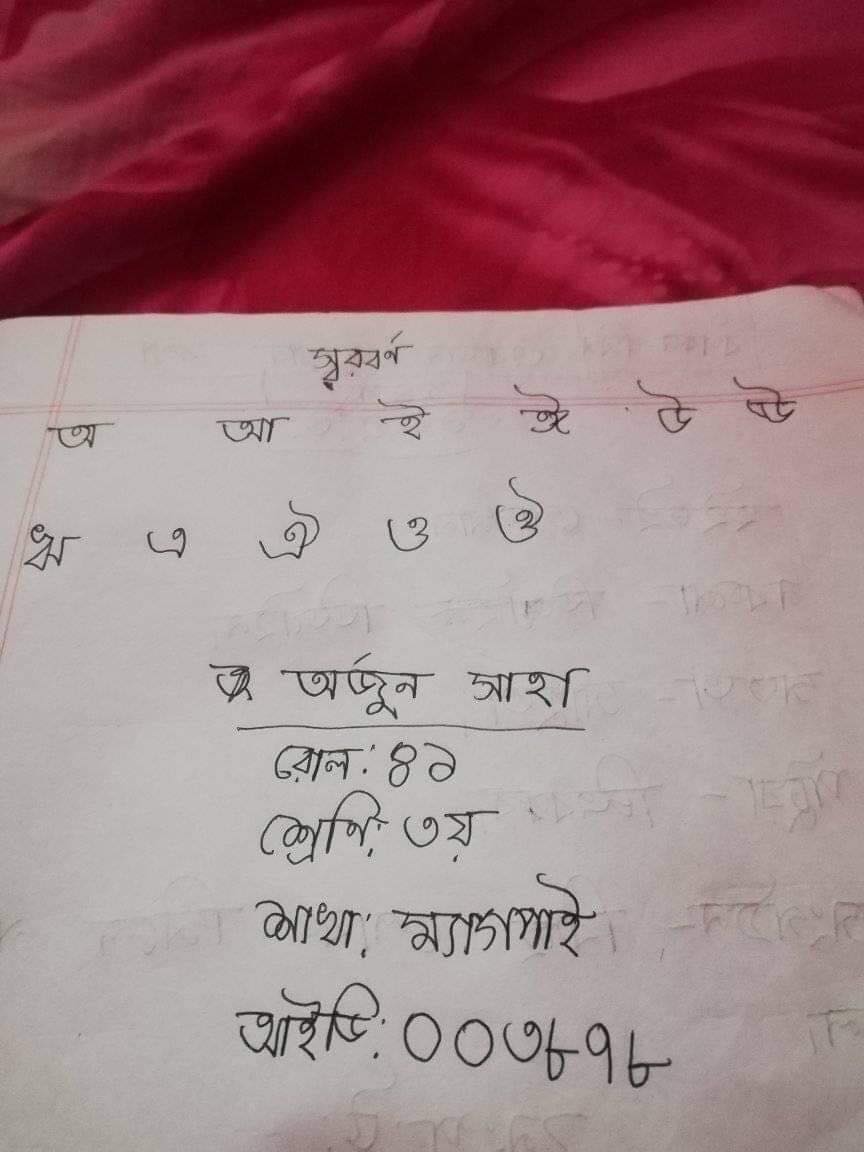 স্বরবর্ণ
অ আ ই ঈ উ ঊ
ঋ এ ঐ ও ঔ
অর্জুন সাহা
রোল: ৪১
শ্রেণি: ৩য়
শাখা: ম্যাগপাই
আইডি: ০০৩৮৭৮